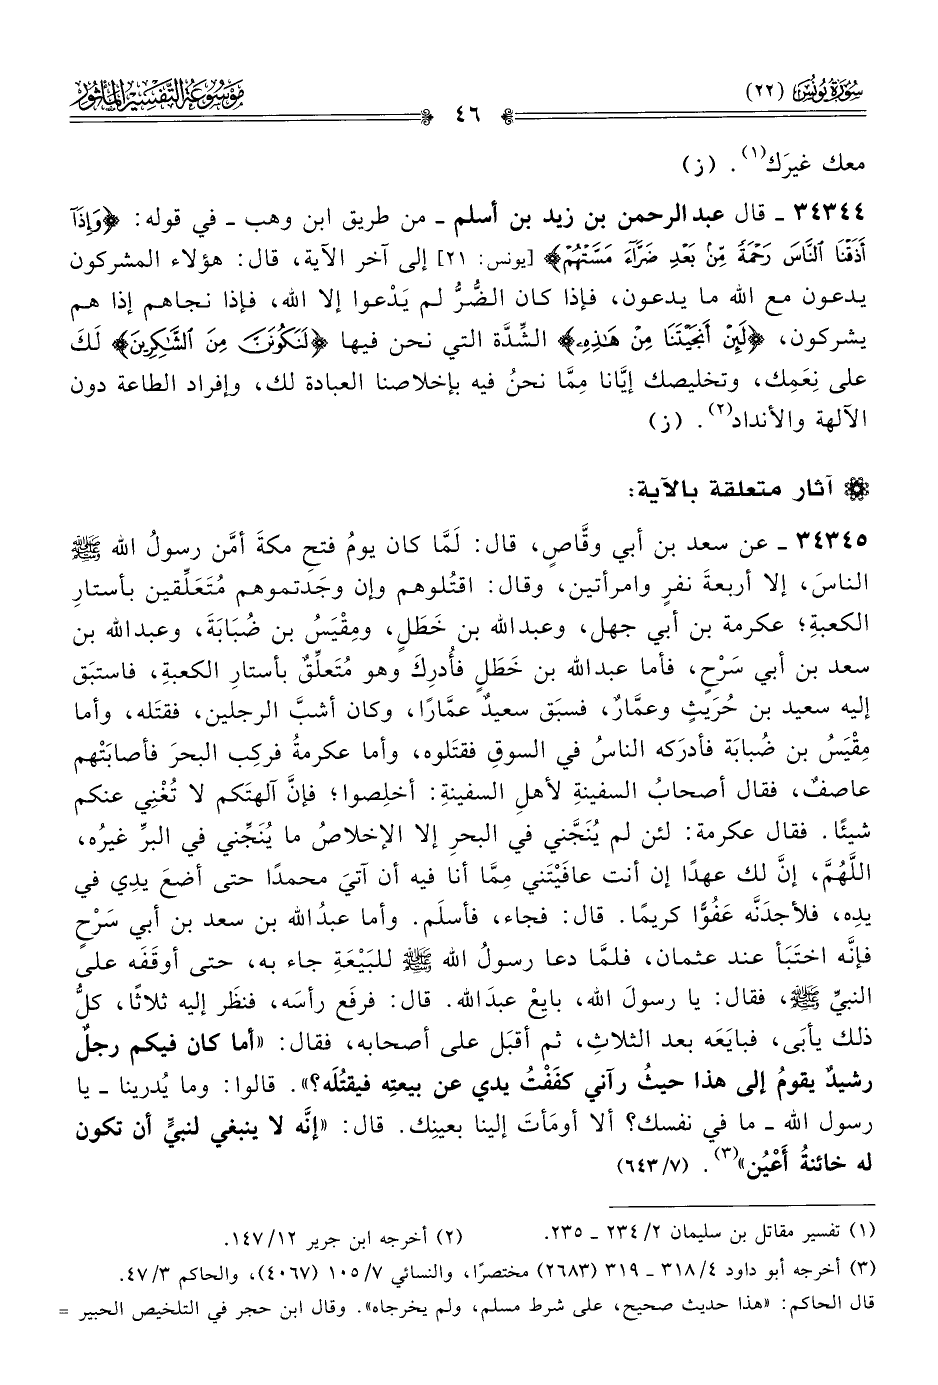 سُورَةُ يُونُسَ (٢٢)
٤٦
مَوْسُوعَةُ التَّفْسِيرِ المَأْثُورِ
معك غيرَك(١). (ز)
٣٤٣٤٤ ـ قال عبد الرحمن بن زيد بن أسلم ـ من طريق ابن وهب ـ في قوله: ﴿وَإِذَآ
أَذَقْنَا ٱلنَّاسَ رَحْمَةً مِّنۢ بَعْدِ ضَرَّآءَ مَسَّتْهُمْ﴾ [يونس: ٢١] إلى آخر الآية، قال: هؤلاء المشركون
يدعون مع الله ما يدعون، فإذا كان الضُّرُّ لم يَدْعوا إلا الله، فإذا نجاهم إذا هم
يشركون، ﴿لَئِنْ أَنجَيْتَنَا مِنْ هَٰذِهِۦ﴾ الشِّدَّة التي نحن فيها ﴿لَنَكُونَنَّ مِنَ ٱلشَّٰكِرِينَ﴾ لَكَ
على نِعَمِك، وتخليصك إيَّانا مِمَّا نحنُ فيه بإخلاصنا العبادة لك، وإفراد الطاعة دون
الآلهة والأنداد(٢). (ز)
آثار متعلقة بالآية:
٣٤٣٤٥ ـ عن سعد بن أبي وقَّاصٍ، قال: لَمَّا كان يومُ فتحِ مكةَ أمَّن رسولُ الله ﷺ
الناسَ، إلا أربعةَ نفرٍ وامرأتين، وقال: اقتُلوهم وإن وجَدتموهم مُتَعَلِّقين بأستارِ
الكعبةِ؛ عكرمة بن أبي جهل، وعبدالله بن خَطَلٍ، ومِقْيَسُ بن ضُبَابَةَ، وعبدالله بن
سعد بن أبي سَرْحٍ، فأما عبدالله بن خَطَلٍ فأُدرِكَ وهو مُتَعلِّقٌ بأستارِ الكعبةِ، فاستبَق
إليه سعيد بن حُرَيثٍ وعمَّارٌ، فسبَق سعيدٌ عمَّارًا، وكان أشبَّ الرجلين، فقتَله، وأما
مِقْيَسُ بن ضُبابَة فأدرَكه الناسُ في السوقِ فقتَلوه، وأما عكرمةُ فركِب البحرَ فأصابَتْهم
عاصفٌ، فقال أصحابُ السفينةِ لأهلِ السفينةِ: أخلِصوا؛ فإنَّ آلهتَكم لا تُغْنِي عنكم
شيئًا. فقال عكرمة: لئن لم يُنَجِّني في البحرِ إلا الإخلاصُ ما يُنَجِّني في البرِّ غيرُه،
اللَّهُمَّ، إنَّ لك عهدًا إن أنت عافَيْتَني مِمَّا أنا فيه أن آتيَ محمدًا حتى أضعَ يدِي في
يدِه، فلأجدَنَّه عَفُوًّا كريمًا. قال: فجاء، فأسلَم. وأما عبدُالله بن سعد بن أبي سَرْحٍ
فإنَّه اختَبَأ عند عثمان، فلمَّا دعا رسولُ الله ﷺ للبَيْعَةِ جاء به، حتى أوقَفَه على
النبيِّ ﷺ، فقال: يا رسولَ الله، بايِعْ عبدَالله. قال: فرفَع رأسَه، فنظَر إليه ثلاثًا، كلُّ
ذلك يأبَى، فبايَعَه بعد الثلاثِ، ثم أقبَل على أصحابه، فقال: «أما كان فيكم رجلٌ
رشيدٌ يقومُ إلى هذا حيثُ رآني كفَفْتُ يدي عن بيعتِه فيقتُلَه؟». قالوا: وما يُدرينا ـ يا
رسول الله ـ ما في نفسك؟ ألا أومَأتَ إلينا بعينِك. قال: «إنَّه لا ينبغي لنبيٍّ أن تكون
له خائنةُ أَعْيُن»(٣). (٧/ ٦٤٣)
(١) تفسير مقاتل بن سليمان ٢/ ٢٣٤ ـ ٢٣٥.
(٢) أخرجه ابن جرير ١٢/ ١٤٧.
(٣) أخرجه أبو داود ٤/ ٣١٨ ـ ٣١٩ (٢٦٨٣) مختصرًا، والنسائي ٧/ ١٠٥ (٤٠٦٧)، والحاكم ٣/ ٤٧.
قال الحاكم: «هذا حديث صحيح، على شرط مسلم، ولم يخرجاه». وقال ابن حجر في التلخيص الحبير =